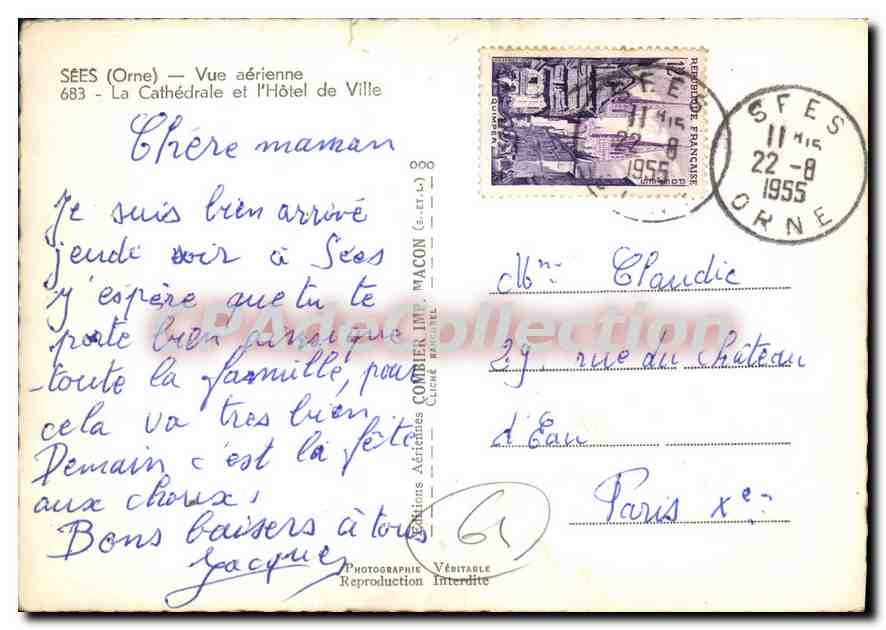 SÉES (Orne) — Vue aérienne
683 - La Cathédrale et l'Hôtel de Ville
Chère maman
Je suis bien arrivé
jeudi soir à Sées
j'espère que tu te
porte bien ainsi que
toute la famille, pour
cela va tres bien
Demain c'est la fête
aux choux.
Bons baisers à tous
Jacques
Editions Aériennes COMBIER IMP. MACON (S.-ET-L.)
CLICHÉ RANCUREL
PHOTOGRAPHIE VÉRITABLE
Reproduction Interdite
61
RÉPUBLIQUE FRANÇAISE
QUIMPER
SEES
11 H 15
22 -8
1955
ORNE
SEES
11 H 15
22 -8
1955
Mme Claudic
29. rue du château
d'Eau
Paris Xe
CPADeCollection